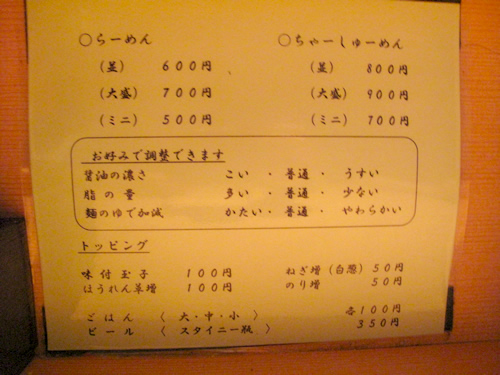 ○らーめん ○ちゃーしゅーめん
(並) 600円 (並) 800円
(大盛) 700円 (大盛) 900円
(ミニ) 500円 (ミニ) 700円
お好みで調整できます
醤油の濃さ こい ・ 普通 ・ うすい
脂の量 多い ・ 普通 ・ 少ない
麺のゆで加減 かたい ・ 普通 ・ やわらかい
トッピング
味付玉子 100円 ねぎ増(白葱) 50円
ほうれん草増 100円 のり増 50円
ごはん 〈 大・中・小 〉 各100円
ビール 〈 スタイニー瓶 〉 350円